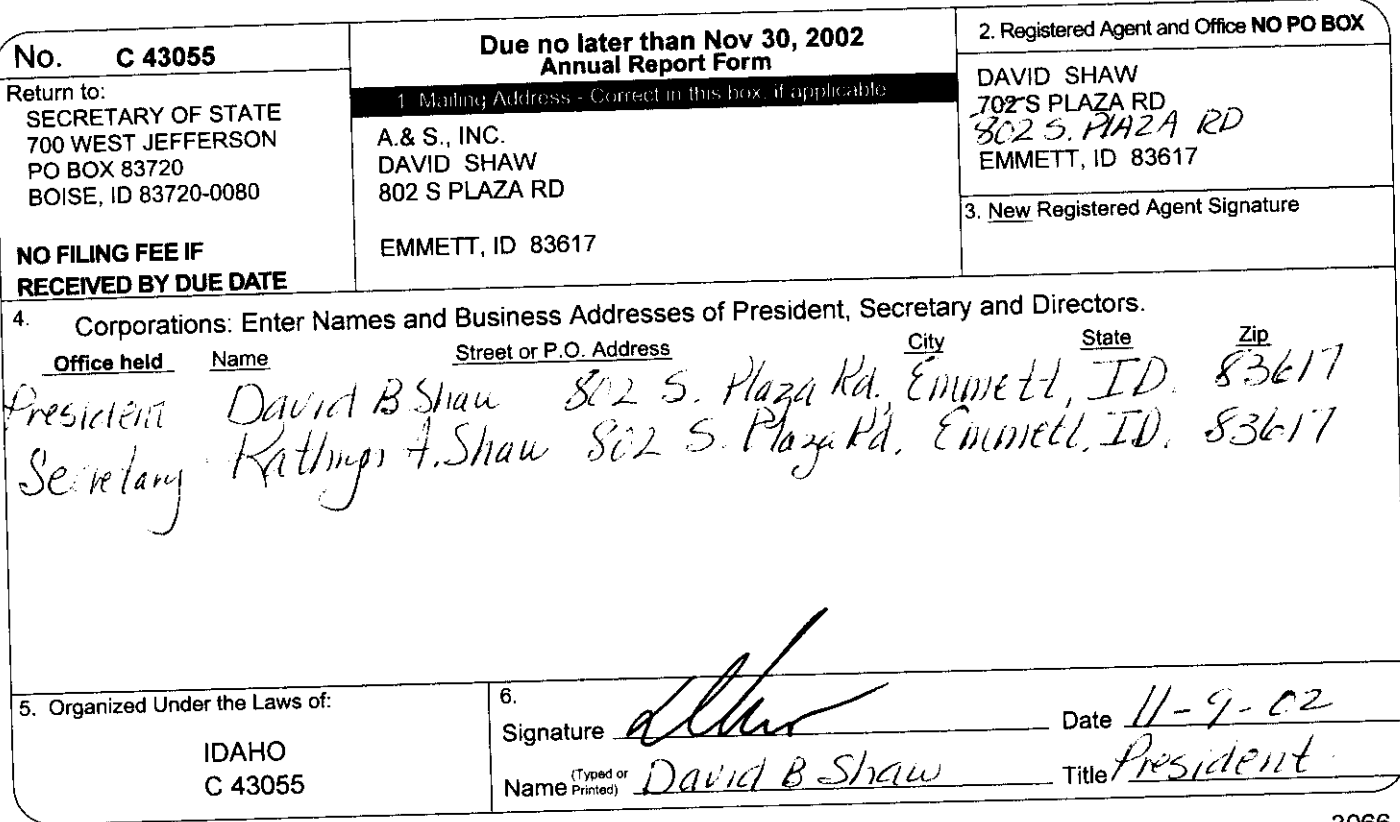 No. C 43055
Return to:
SECRETARY OF STATE
700 WEST JEFFERSON
PO BOX 83720
BOISE, ID 83720-0080
NO FILING FEE IF
RECEIVED BY DUE DATE
Due no later than Nov 30, 2002
Annual Report Form
1. Mailing Address - Correct in this box, if applicable
A.& S., INC.
DAVID SHAW
802 S PLAZA RD
EMMETT, ID 83617
2. Registered Agent and Office NO PO BOX
DAVID SHAW
702 S PLAZA RD
802 S. PLAZA RD
EMMETT, ID 83617
3. New Registered Agent Signature
4. Corporations: Enter Names and Business Addresses of President, Secretary and Directors.
Office held Name Street or P.O. Address City State Zip
President David B Shaw 802 S. Plaza Rd., Emmett, ID. 83617
Secretary Kathryn A. Shaw 802 S. Plaza Rd, Emmett, ID. 83617
5. Organized Under the Laws of:
IDAHO
C 43055
6.
Signature Date 11-9-02
Name (Typed or Printed) David B Shaw Title President